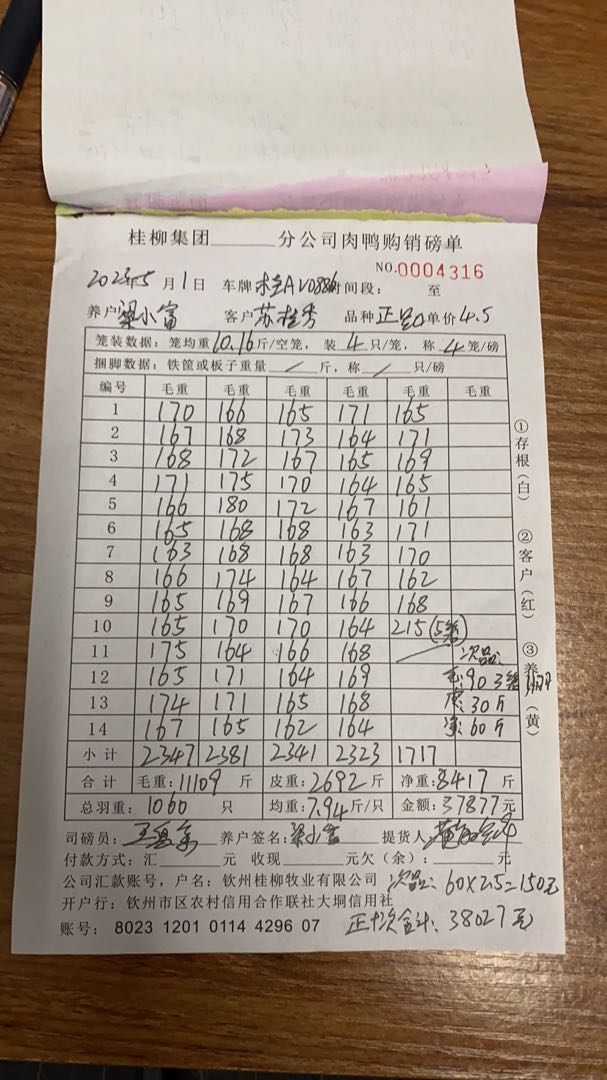 桂柳集团 分公司肉鸭购销磅单
NO.0004316
2023年5月1日 车牌 桂AV0886 时间段: 至
养户 梁小富 客户 苏桂秀 品种 正品 单价 4.5
笼装数据:笼均重 10.16 斤/空笼,装 4 只/笼,称 4 笼/磅
捆脚数据:铁筐或板子重量 / 斤,称 / 只/磅
编号 毛重 毛重 毛重 毛重 毛重 毛重
1 170 166 165 171 165
2 167 168 173 164 171
3 168 172 167 165 169
4 171 175 170 164 165
5 166 180 172 167 161
6 165 168 168 163 171
7 163 168 168 163 170
8 166 174 164 167 162
9 165 169 167 166 168
10 165 170 170 164 215 (5笼)
11 175 164 166 168 次品:
12 165 171 164 169 毛:90 3笼
13 174 171 165 168 皮:30斤
14 167 165 162 164 净:60斤
小计 2347 2381 2341 2323 1717
合计 毛重:11109 斤 皮重:2692 斤 净重:8417 斤
总羽重: 1060 只 均重:7.94 斤/只 金额:37877元
①存根(白) ②客户(红) ③养户(黄)
司磅员: 养户签名:梁小富 提货人
付款方式:汇 元 收现 元欠(余): 元
公司汇款账号,户名:钦州桂柳牧业有限公司 次品:60×2.5=150元
开户行:钦州市区农村信用合作联社大垌信用社
账号: 8023 1201 0114 4296 07 正+次合计:38027元